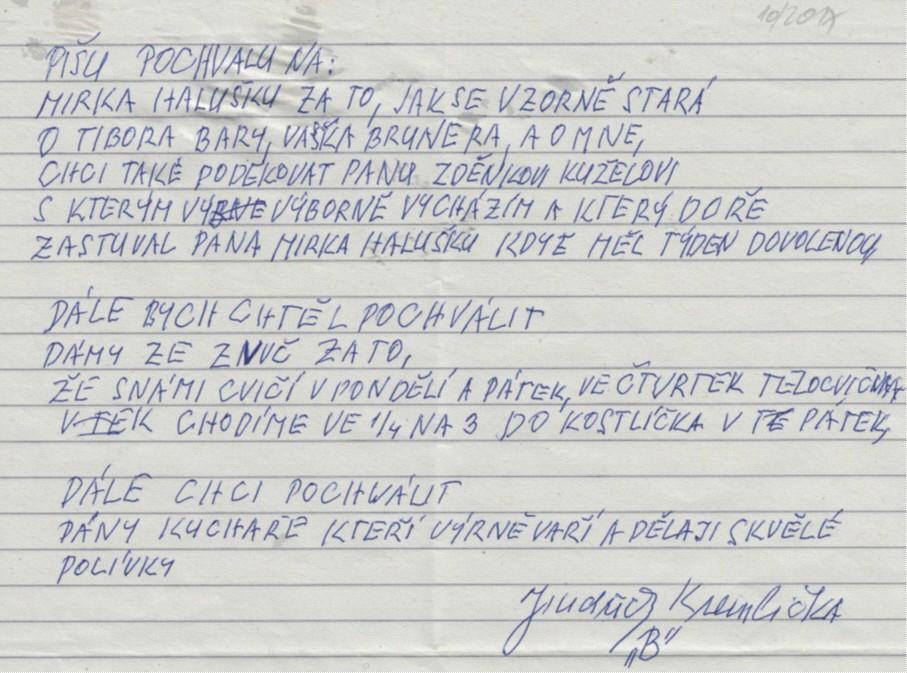 10/2017
PÍŠU POCHVALU NA:
MIRKA HALUŠKU ZA TO, JAK SE VZORNĚ STARÁ
O TIBORA BARY, VAŠKA BRUNERA, A O MNE,
CHCI TAKÉ PODĚKOVAT PANU ZDĚNKOVI KUŽELOVI
S KTERÝM VÝBNE VÝBORNĚ VYCHÁZÍM A KTERÝ DOŘE
ZASTUVAL PANA MIRKA HALUŠKU KDYŽ MĚL TÝDEN DOVOLENOU
DÁLE BYCH CHTĚL POCHVÁLIT
DÁMY ZE ZNUČ ZA TO,
ŽE SNÁMI CVIČÍ V PONDĚLÍ A PÁTEK, VE ČTVRTEK
CHODÍME VE 1/4 NA 3 DO KOSTLÍČKA V PÁTEK,
DÁLE CHCI POCHWÁLIT
PÁNY KUCHAŘE KTEŘÍ VÝRNĚ VAŘÍ A DĚLAJI SKVĚLÉ
POLÍVKY
Jindřich Kremlička
„B"